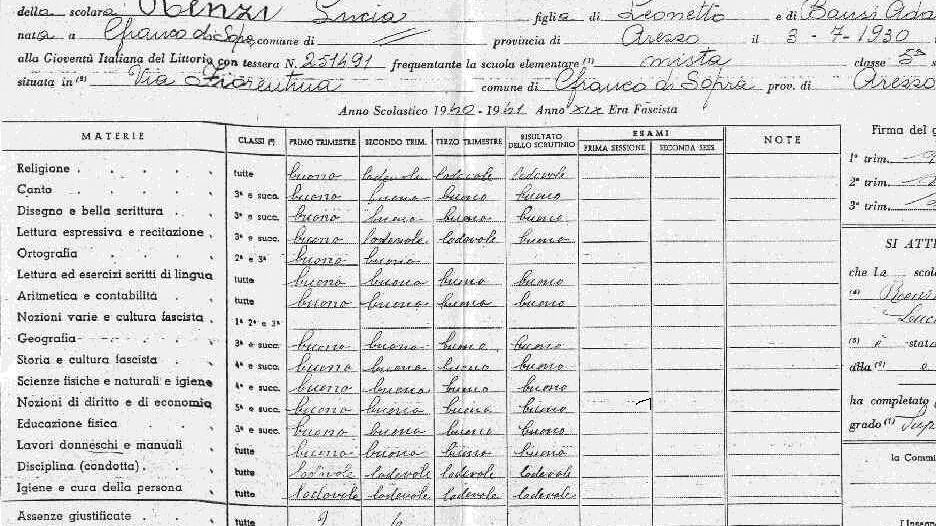 della scolara Renzi Lucia figlia di Leonetto e di Bansi Ada
nata a Cfranco di Sopr. comune di // provincia di Arezzo il 3-7-1930
alla Gioventù Italiana del Littorio con tessera N. 251491 frequentante la scuola elementare (1) mista classe 5ª s
situata in (2) Via Fiorentina comune di Cfranco di Sopra prov. di Arezzo
Anno Scolastico 1940-1941 Anno XIX Era Fascista
MATERIE CLASSI (*) PRIMO TRIMESTRE SECONDO TRIM. TERZO TRIMESTRE RISULTATO DELLO SCRUTINIO ESAMI PRIMA SESSIONE SECONDA SESS. NOTE
Firma del g
Religione tutte buono lodevole lodevole lodevole
1° trim.
Canto 3ª e succ. buono buono buono buono
2° trim.
Disegno e bella scrittura 3ª e succ. buono buono buono buono
3° trim.
Lettura espressiva e recitazione 3ª e succ. buono lodevole lodevole buono
SI ATTE
Ortografia 2ª e 3ª buono buono
Lettura ed esercizi scritti di lingua tutte buono buono buono buono
che la scol
Aritmetica e contabilità tutte buono buono buono buono
(4) Renzi
Nozioni varie e cultura fascista 1ª 2ª e 3ª
Lucia
Geografia 3ª e succ. buono buono buono buono
(5) è stat
Storia e cultura fascista 4ª e succ. buono buono buono buono
alla (6)
Scienze fisiche e naturali e igiene 4ª e succ. buono buono buono buono
Nozioni di diritto e di economia 5ª e succ. buono buono buono buono
ha completato
Educazione fisica 3ª e succ. buono buono buono buono
grado (7) Sup
Lavori donneschi e manuali tutte buono buono buono buono
la Commi
Disciplina (condotta) tutte lodevole lodevole lodevole lodevole
Igiene e cura della persona tutte lodevole lodevole lodevole lodevole
Assenze giustificate tutte
L'Insegn